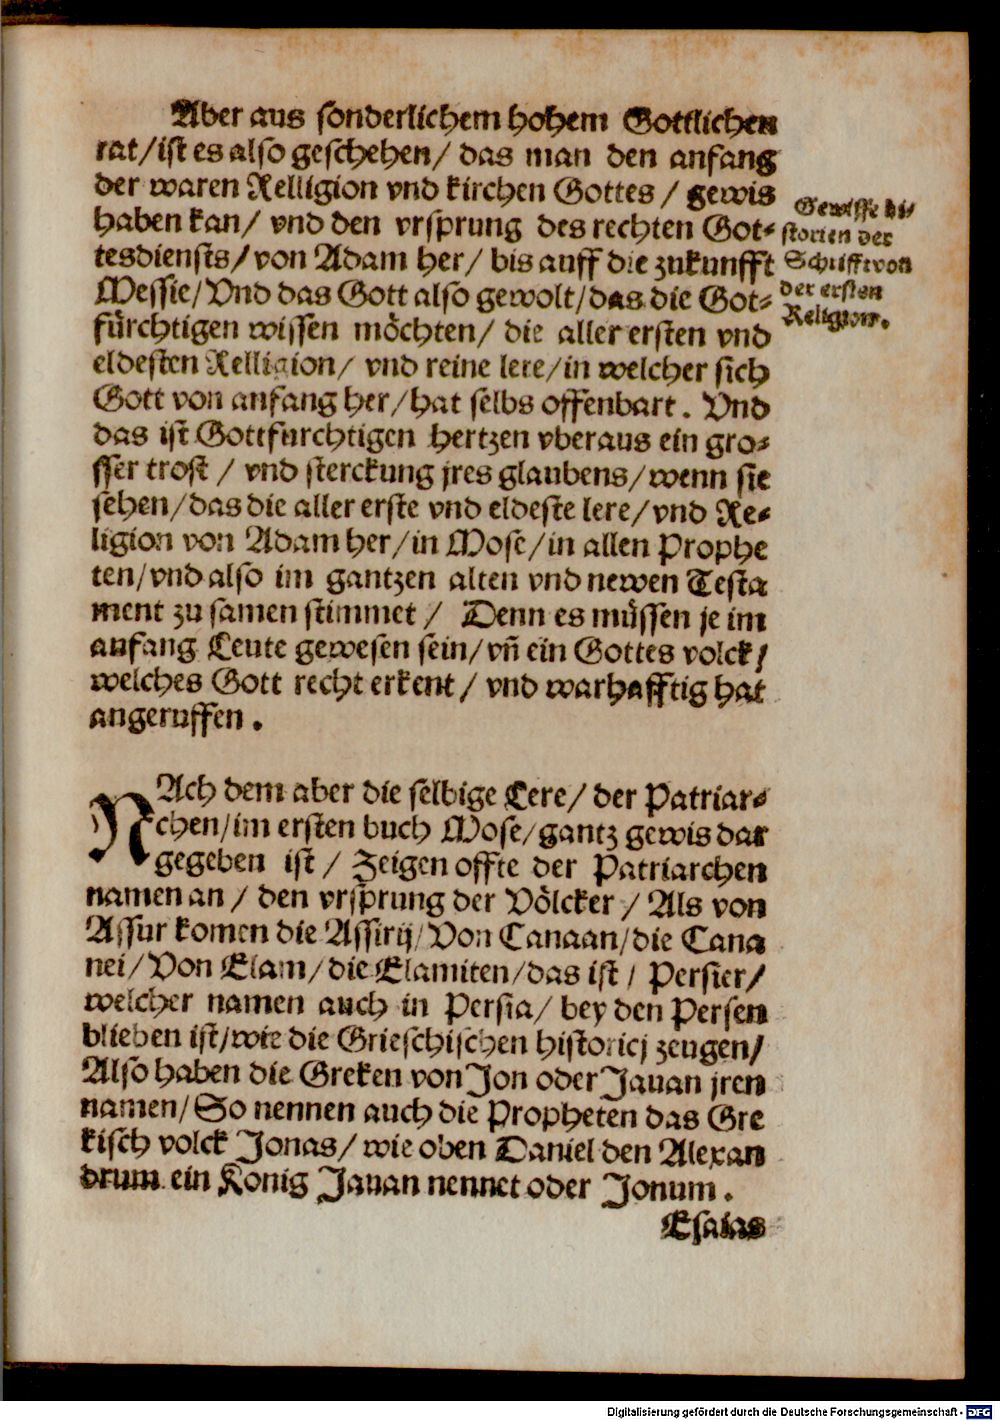 Aber aus sonderlichem hohem Gottlichen
rat/ist es also geschehen/ das man den anfang
der waren Relligion vnd kirchen Gottes / gewis
haben kan/ vnd den vrsprung des rechten Got-
tesdiensts/ von Adam her/ bis auff die zukunfft
Messie/ Vnd das Gott also gewolt/das die Got-
fürchtigen wissen möchten/ die aller ersten vnd
eldesten Relligion/ vnd reine lere/in welcher sich
Gott von anfang her/hat selbs offenbart. Vnd
das ist Gottfurchtigen hertzen vberaus ein gro-
sser trost / vnd sterckung jres glaubens/wenn sie
sehen/das die aller erste vnd eldeste lere/vnd Re-
ligion von Adam her/in Mose/in allen Prophe
ten/vnd also im gantzen alten vnd newen Testa
ment zu samen stimmet / Denn es müssen je im
anfang Leute gewesen sein/vñ ein Gottes volck/
welches Gott recht erkent / vnd warhafftig hat
angeruffen.
Gewisse hi-
storien der
Schrifft von
der ersten
Religion.
NAch dem aber die selbige Lere/ der Patriar-
chen/im ersten buch Mose/gantz gewis dar
gegeben ist / Zeigen offte der Patriarchen
namen an / den vrsprung der Völcker / Als von
Assur komen die Assirij/ Von Canaan/die Cana
nei/ Von Elam/die Elamiten/das ist/ Persier/
welcher namen auch in Persia/ bey den Persen
blieben ist/wie die Grieschischen historicj zeugen/
Also haben die Greken von Jon oder Jauan jren
namen/ So nennen auch die Propheten das Gre
kisch volck Jonas/ wie oben Daniel den Alexan
drum ein Konig Jauan nennet oder Jonum.
Esaias
Digitalisierung gefördert durch die Deutsche Forschungsgemeinschaft - DFG